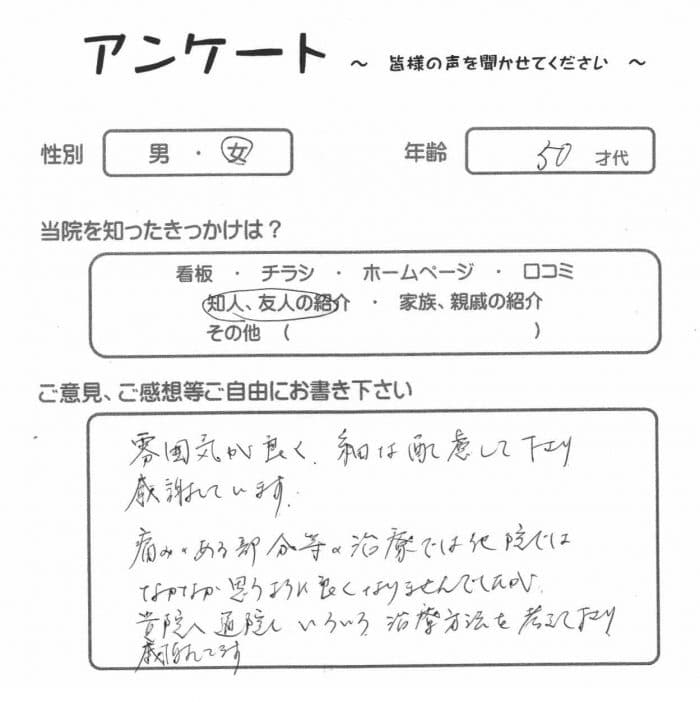 アンケート ～ 皆様の声を聞かせてください ～
性別 男 ・ 女 年齢 50 才代
当院を知ったきっかけは？
看板 ・ チラシ ・ ホームページ ・ 口コミ
知人、友人の紹介 ・ 家族、親戚の紹介
その他 （ ）
ご意見、ご感想等ご自由にお書き下さい
雰囲気が良く、細は配慮して下さり
感謝しています。
痛みのある部分等の治療では他院では
なかなか思うように良くなりませんでしたが、
貴院へ通院し いろいろ 治療方法を考えて下さり
感謝してます